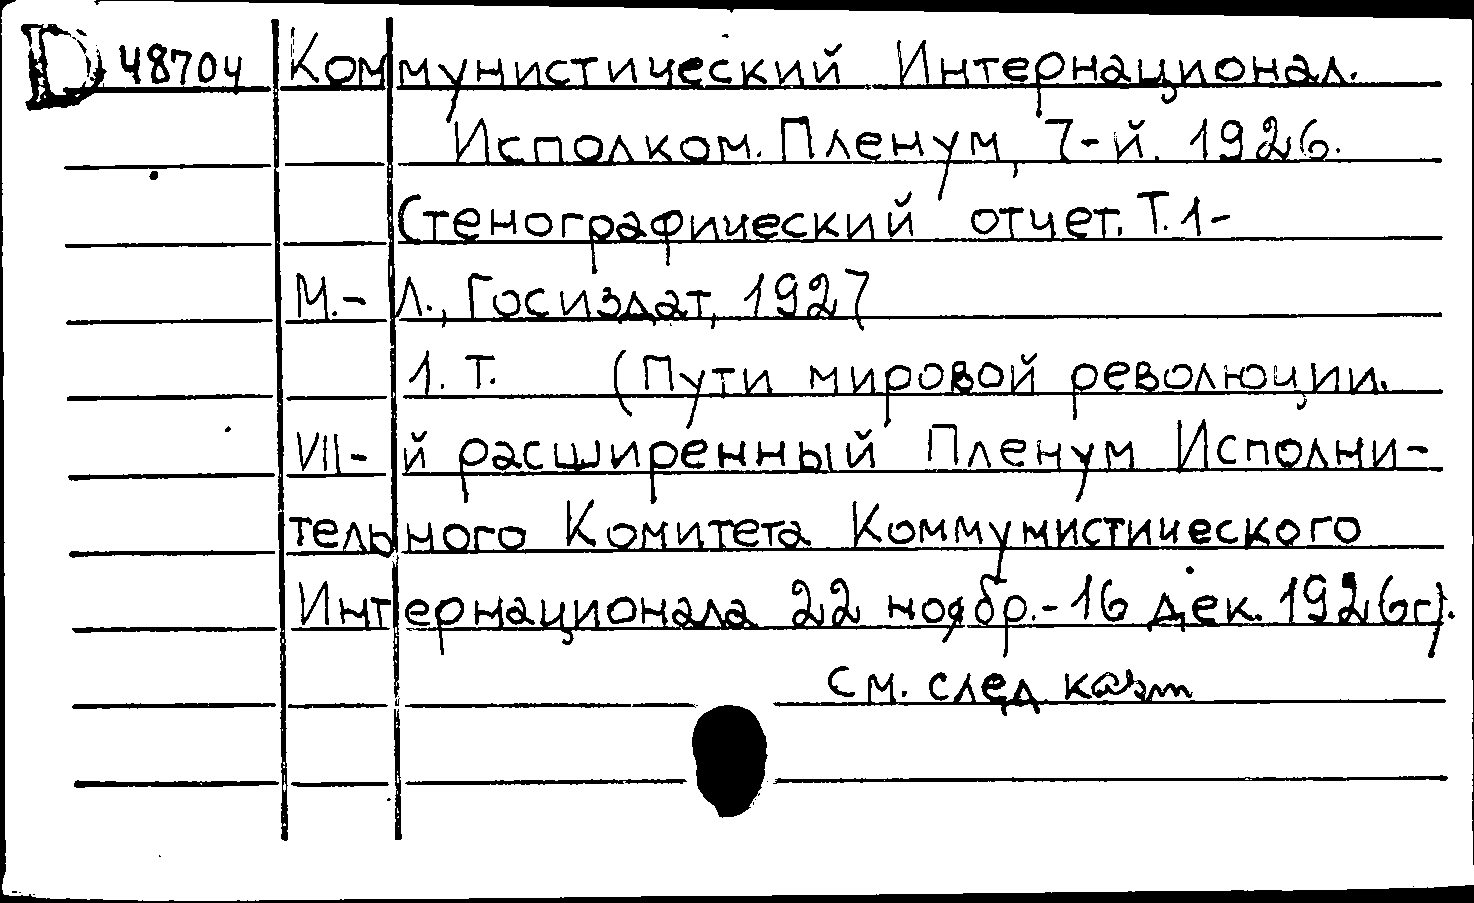 D 48704 Коммунистический Интернационал.
Исполком. Пленум, 7-й. 1926.
Стенографический отчет. Т. 1-
М.- Л., Госиздат, 1927
1. Т. (Пути мировой революции.
VII- й расширенный Пленум Исполни-
тельного Комитета Коммунистического
Интернационала 22 ноябр.- 16 дек. 1926г).
См. след карт